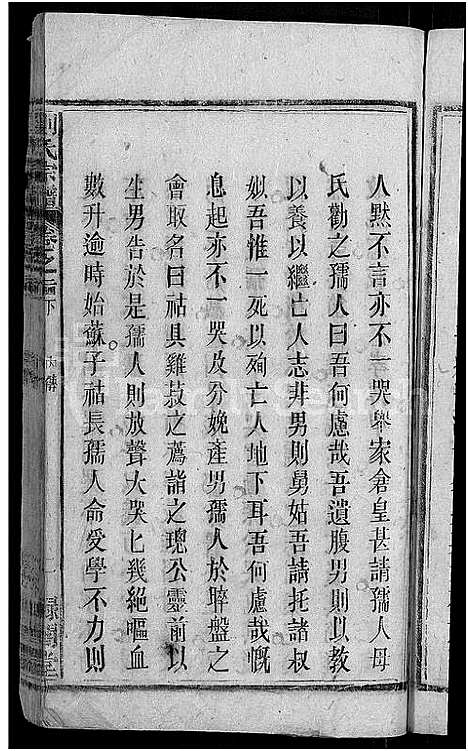 人默不言亦不一哭舉家倉皇甚請孺人母
氏勸之孺人曰吾何慮哉吾遺腹男則以教
以養以繼亡人志非男則舅姑吾請托諸叔
姒吾惟一死以殉亡人地下耳吾何慮哉慨
息起亦不一哭及分娩產男孺人於晬盤之
會取名曰祜具雞菽之薦詣之璁公靈前以
生男告於是孺人則放聲大哭匕幾絕嘔血
數升逾時始蘇子祜長孺人命愛學不力則
劉氏宗譜 卷之 下 內傳